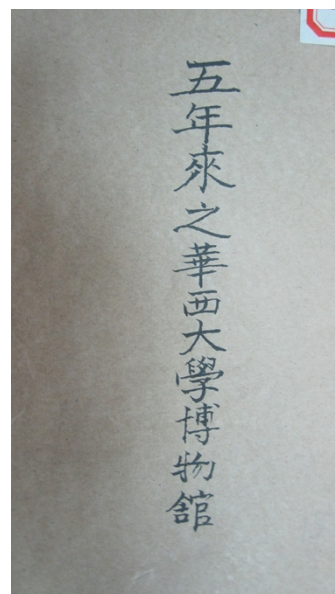 五年來之華西大學博物舘